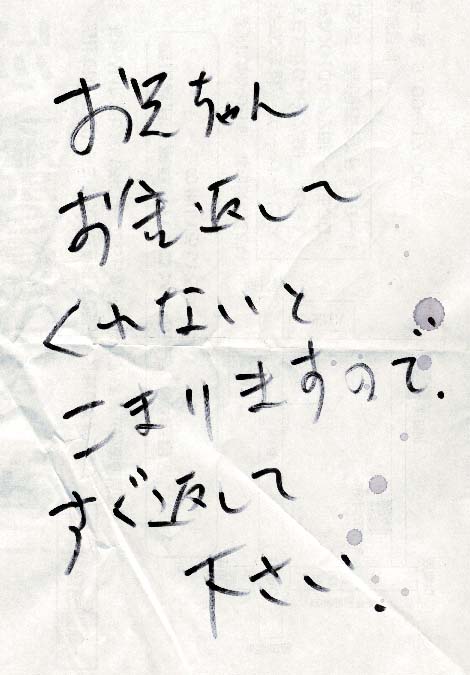 お兄ちゃん
お金返して
くれないと
こまりますので.
すぐ返して
下さい.